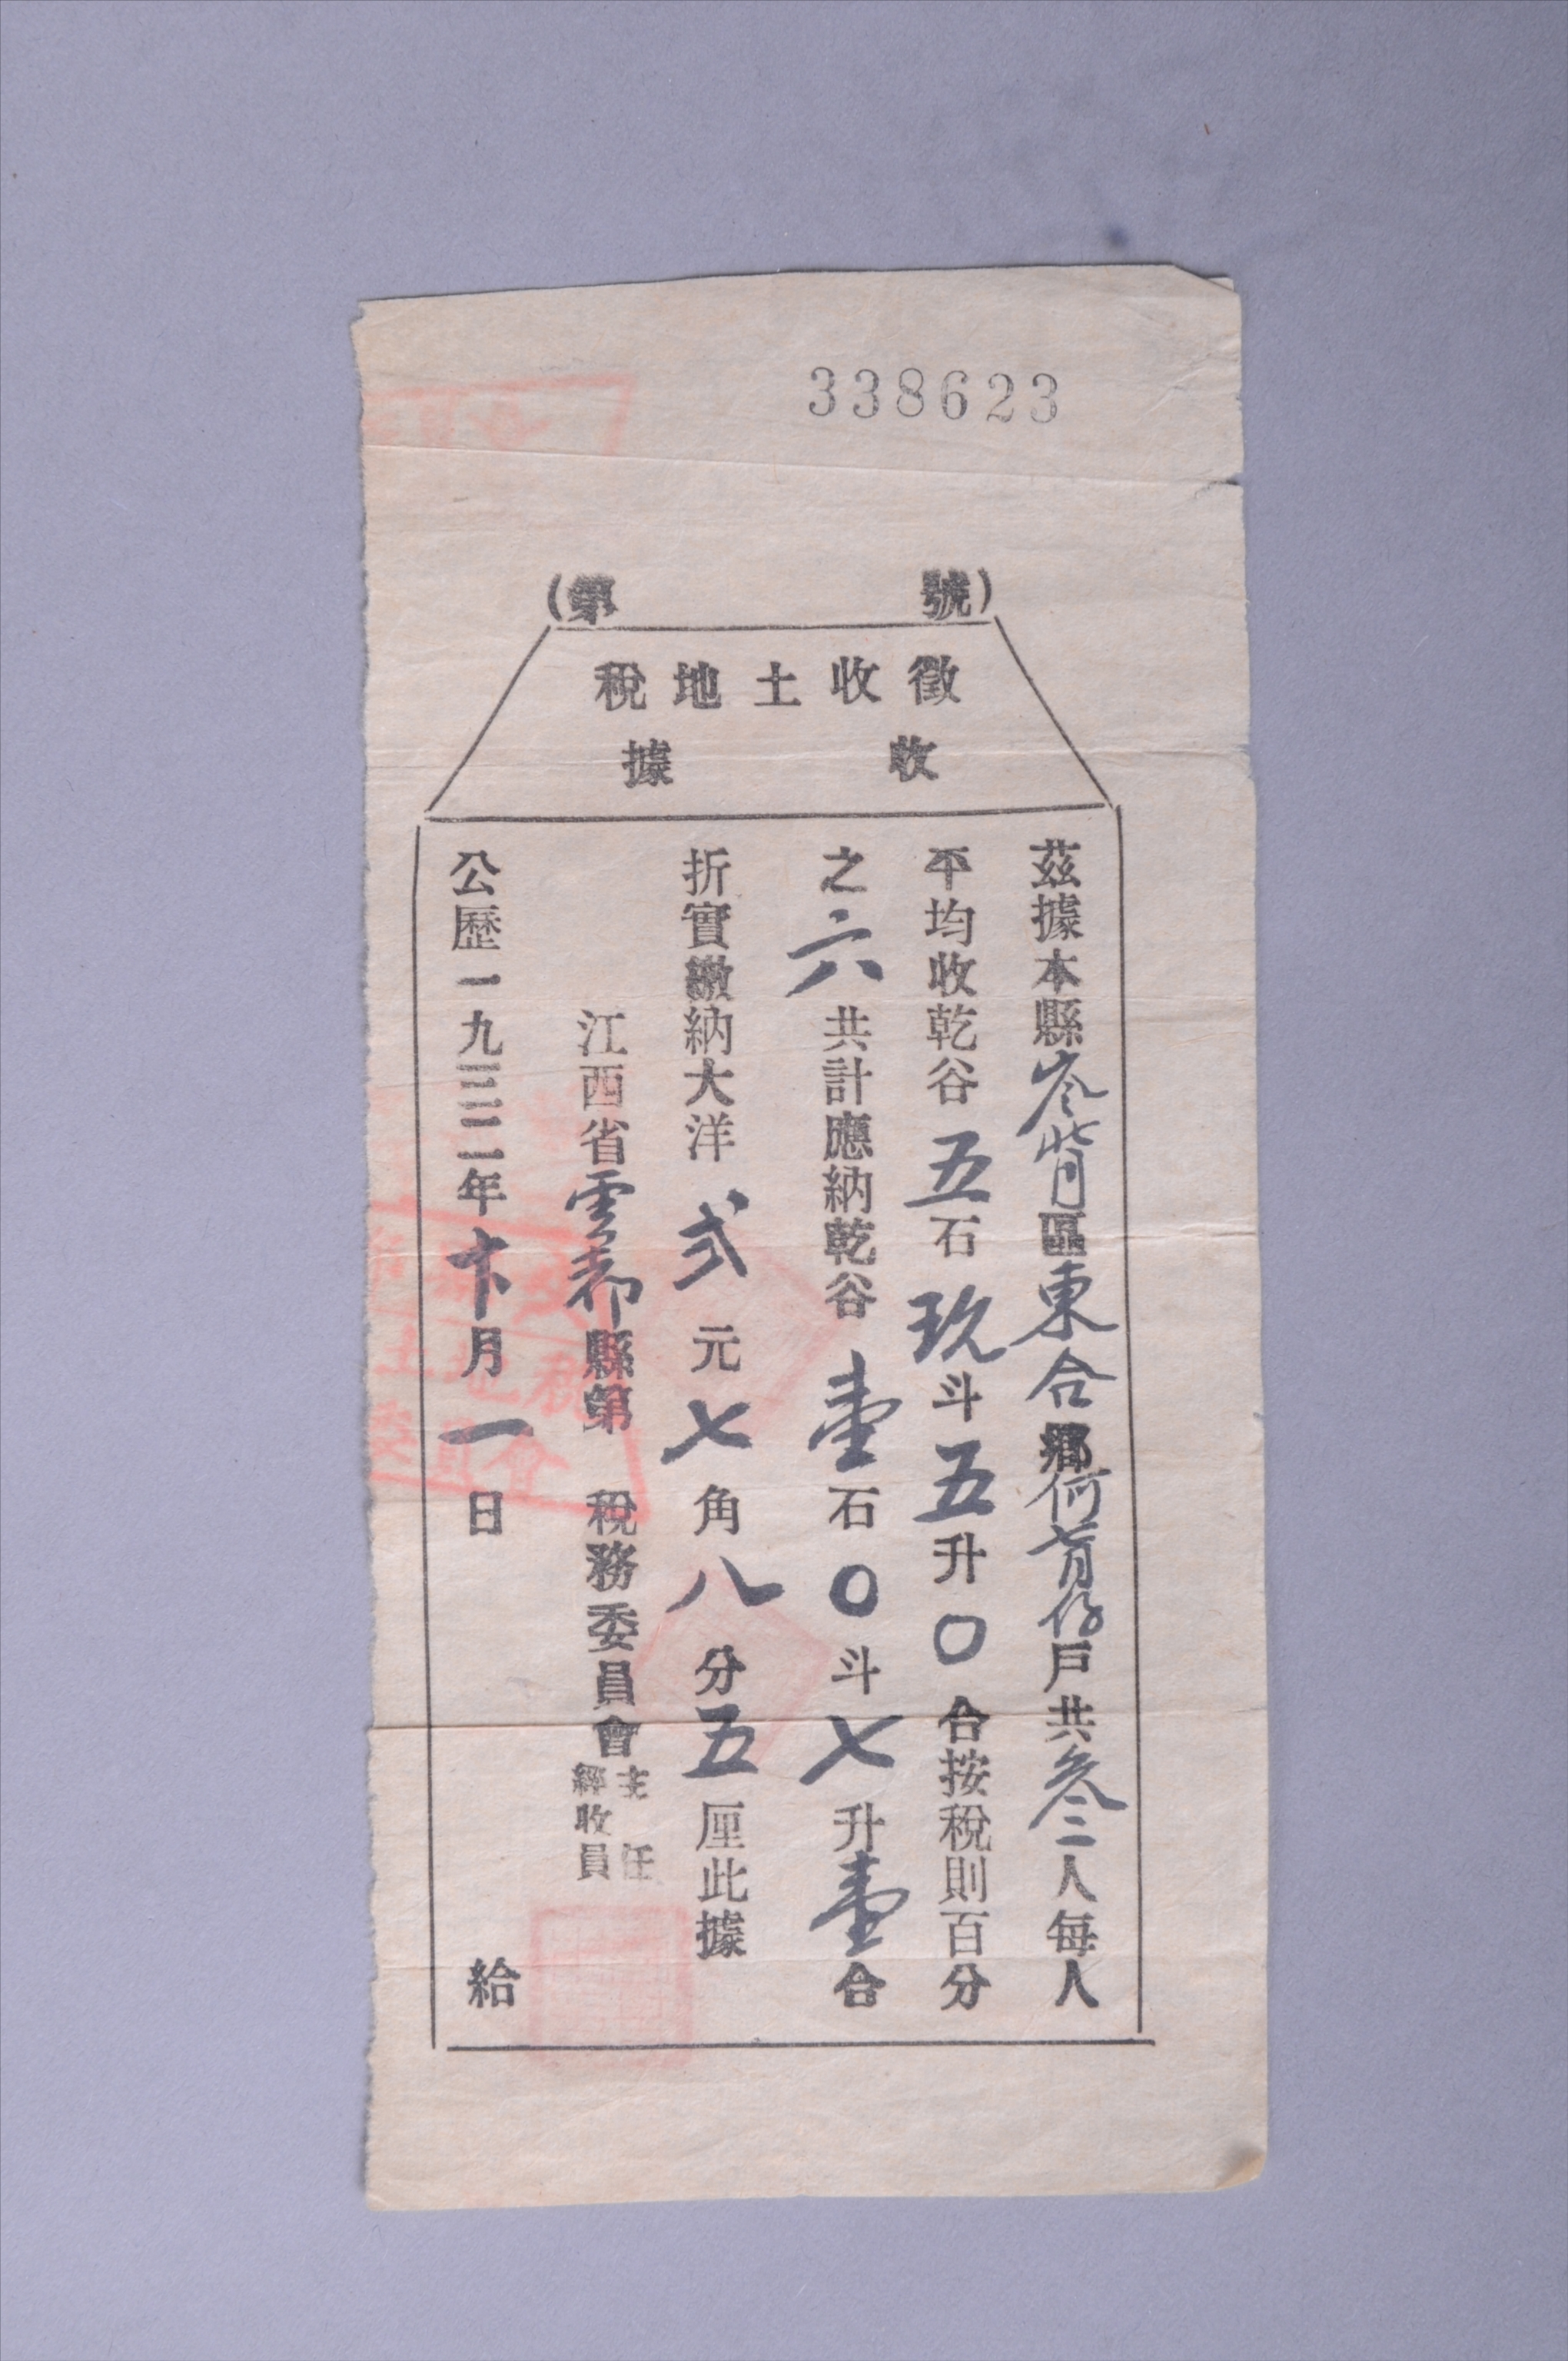 338623
(第 號)
徵收土地稅
收據
茲據本縣岺背區東合鄉何仔戶共叁人每人
平均收乾谷五石玖斗五升〇合按稅則百分
之六共計應納乾谷壹石〇斗七升壹合
折實繳納大洋弍元七角八分五厘此據
江西省雩都縣第 稅務委員會主任經收員
公歷一九三二年月一日 給
土地稅
委員會